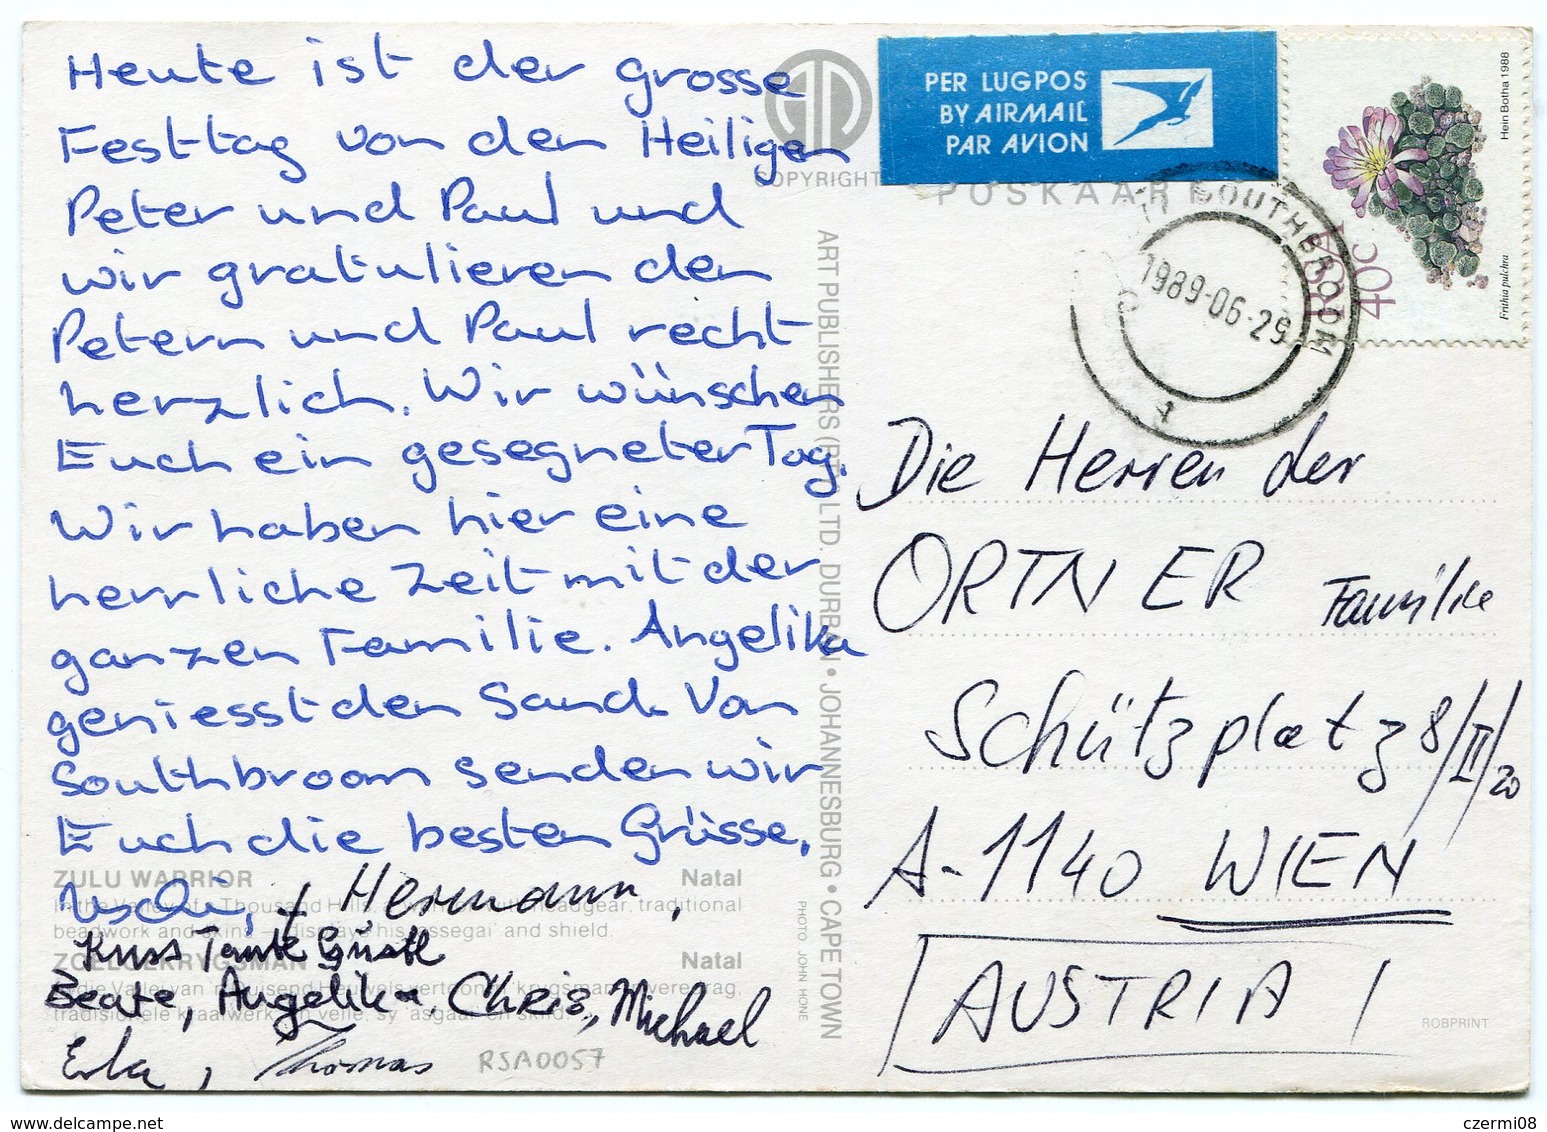 Heute ist der grosse
Festtag von den Heiligen
Peter und Paul und
wir gratulieren den
Petern und Paul recht
herzlich. Wir wünschen
Euch ein gesegneter Tag.
Wir haben hier eine
herrliche Zeit mit der
ganzen Familie. Angelika
geniesst den Sand. Von
Southbroom senden wir
Euch die besten Grüsse.
Uschi, + Hermann,
Kuss Tante Gustl
Beate, Angelika, CHRIS, Michael
Erka, Thomas
RSA0057
ZULU WARRIOR Natal
In the Valley of a Thousand Hills, a headgear, traditional
beadwork and displays his assegai and shield.
ZOELOEKRYGSMAN Natal
In die Vallei van 'n Duisend Heuwels vertoon krygsman vere
tradisionele kraalwerk en velle, sy 'asgaai en skild.
COPYRIGHT
POSKAART
ART PUBLISHERS (PTY) LTD. DURBAN • JOHANNESBURG • CAPE TOWN
PHOTO JOHN HONE
PER LUGPOS
BY AIRMAIL
PAR AVION
SOUTHBROOM
1989-06-29
RSA
40c
Frithia pulchra
Hein Botha 1988
Die Herren der
ORTNER Familie
Schützplatz 8/II/20
A-1140 WIEN
AUSTRIA
ROBPRINT
www.delcampe.net
czermi08